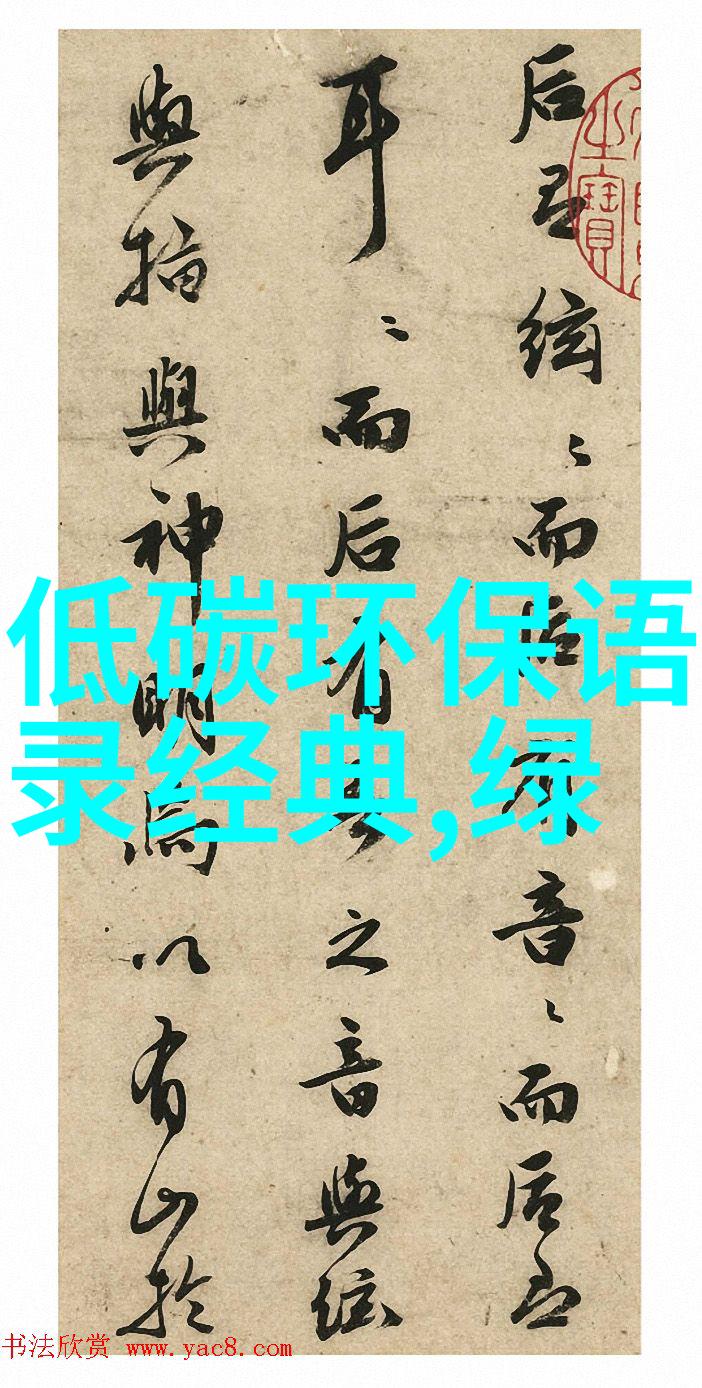 后絃〻而后音〻而后
耳〻而后有之音與絃
與指與神明焉以有山於
之寶
低碳环保语
录经典,绿
书法欣赏 www.yac8.com